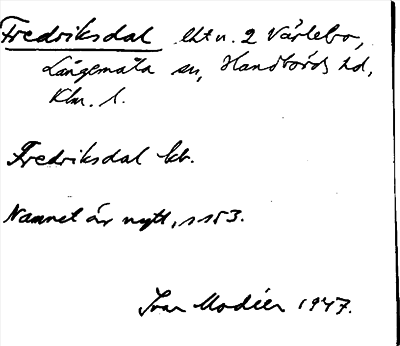 Fredriksdal lht u. 2 Värlebo,
Långemåla sn, Handbörds hd,
Klm. l.
Fredriksdal kb.
Namnet är nytt, s 153.
Ivar Modéer 1947.